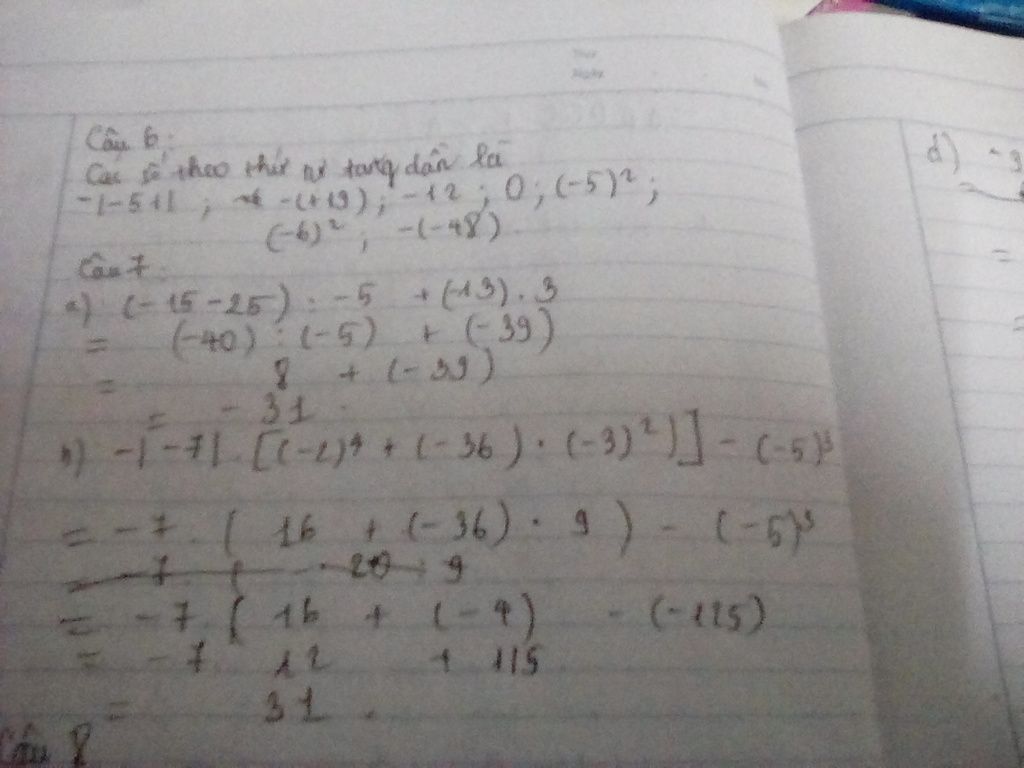 Câu 6:
Các số theo thứ tự tăng dần là
-|-51|; -(+19); -12; 0; (-5)²;
(-6)²; -(-48).
Câu 7:
a) (-15-25) : -5 + (-13).3
= (-40) : (-5) + (-39)
= 8 + (-39)
= -31.
b) -|-7|.[(-2)⁴ + (-36) : (-3)²)] - (-5)³
= -7.( 16 + (-36) : 9 ) - (-5)³
= -7.( 16 + (-4) - (-125)
= -7 . 12 + 115
= 31.
Câu 8
d) -9
=
=
=